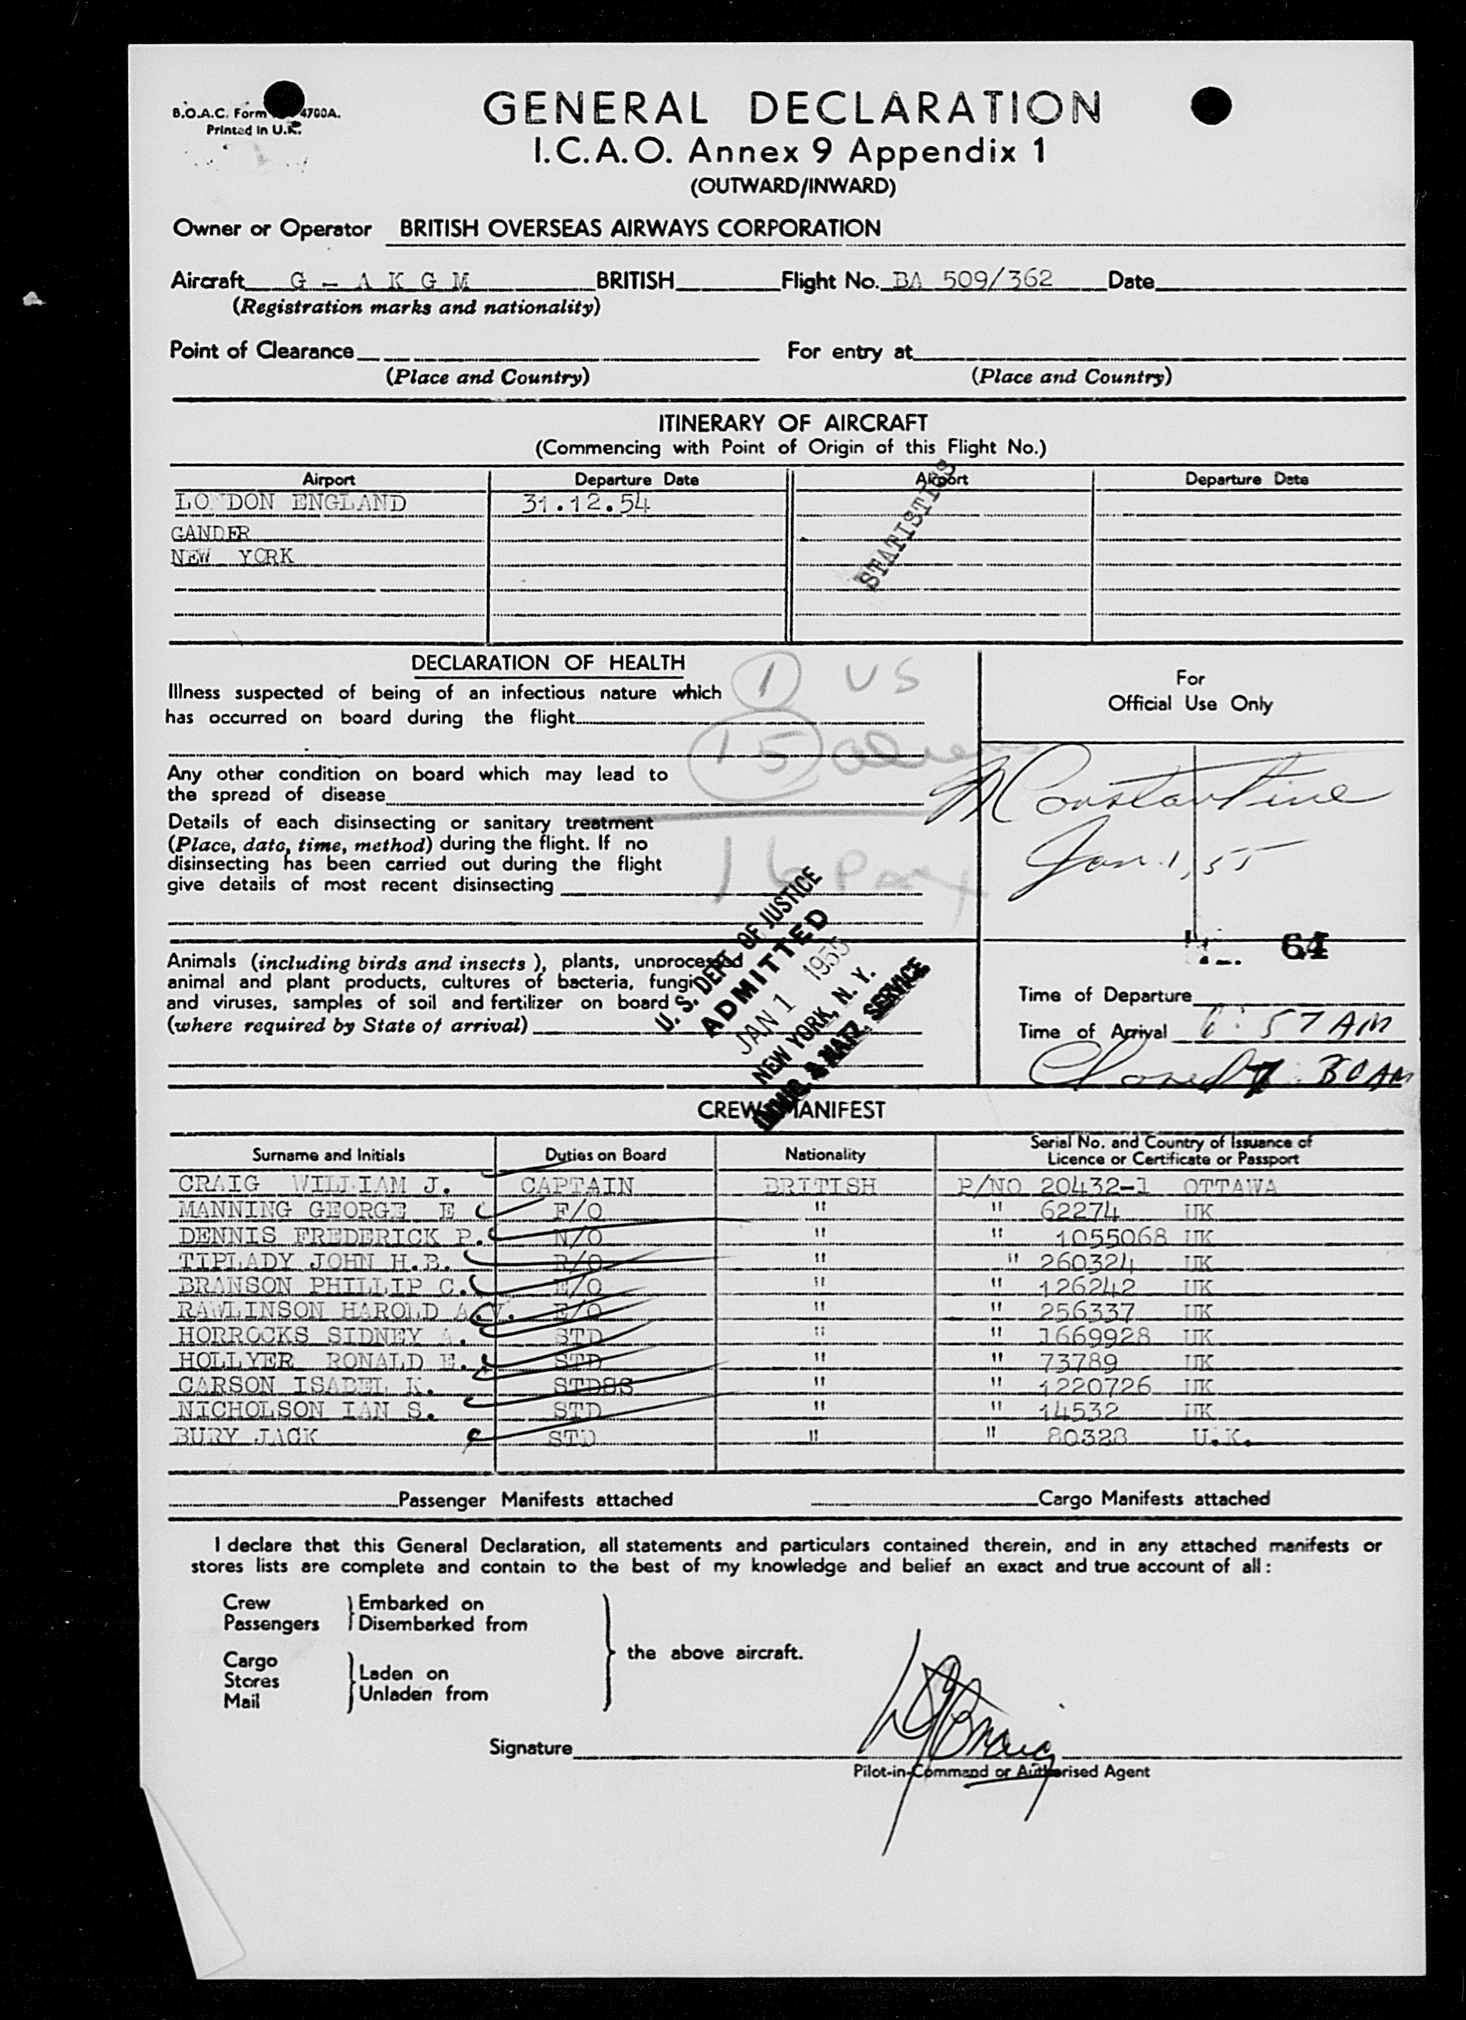 B.O.A.C. Form 4700A.
Printed in U.K.
GENERAL DECLARATION
I.C.A.O. Annex 9 Appendix 1
(OUTWARD/INWARD)
Owner or Operator BRITISH OVERSEAS AIRWAYS CORPORATION
Aircraft G - A K G M BRITISH Flight No. BA 509/362 Date
(Registration marks and nationality)
Point of Clearance For entry at
(Place and Country) (Place and Country)
ITINERARY OF AIRCRAFT
(Commencing with Point of Origin of this Flight No.)
Airport Departure Date Airport Departure Date
LONDON ENGLAND 31.12.54
GANDER
NEW YORK
STATISTICS
DECLARATION OF HEALTH
Illness suspected of being of an infectious nature which
has occurred on board during the flight
1 US
15 aliens
16 Pax
Any other condition on board which may lead to
the spread of disease
Details of each disinsecting or sanitary treatment
(Place, date, time, method) during the flight. If no
disinsecting has been carried out during the flight
give details of most recent disinsecting
For
Official Use Only
M Constantine
Jan. 1, 55
64
Animals (including birds and insects), plants, unprocessed
animal and plant products, cultures of bacteria, fungi
and viruses, samples of soil and fertilizer on board
(where required by State of arrival)
U. S. DEPT. OF JUSTICE
ADMITTED
JAN 1 1955
NEW YORK, N. Y.
IMMIG. & NATZ. SERVICE
Time of Departure
Time of Arrival 6:57 AM
Closed 7:30 AM
CREW MANIFEST
Surname and Initials Duties on Board Nationality Serial No. and Country of Issuance of
Licence or Certificate or Passport
CRAIG WILLIAM J. CAPTAIN BRITISH P/NO 20432-1 OTTAWA
MANNING GEORGE E F/O " " 62274 UK
DENNIS FREDERICK P. N/O " " 1055068 UK
TIPLADY JOHN H.B. R/O " " 260324 UK
BRANSON PHILLIP C. E/O " " 126242 UK
RAWLINSON HAROLD A.V. E/O " " 256337 UK
HORROCKS SIDNEY A. STD " " 1669928 UK
HOLLYER RONALD E. STD " " 73789 UK
CARSON ISABEL K. STDSS " " 1220726 UK
NICHOLSON IAN S. STD " " 14532 UK
BURY JACK STD " " 80328 U.K.
Passenger Manifests attached Cargo Manifests attached
I declare that this General Declaration, all statements and particulars contained therein, and in any attached manifests or
stores lists are complete and contain to the best of my knowledge and belief an exact and true account of all:
Crew
Passengers
Embarked on
Disembarked from
Cargo
Stores
Mail
Laden on
Unladen from
the above aircraft.
Signature WJCraig
Pilot-in-Command or Authorised Agent